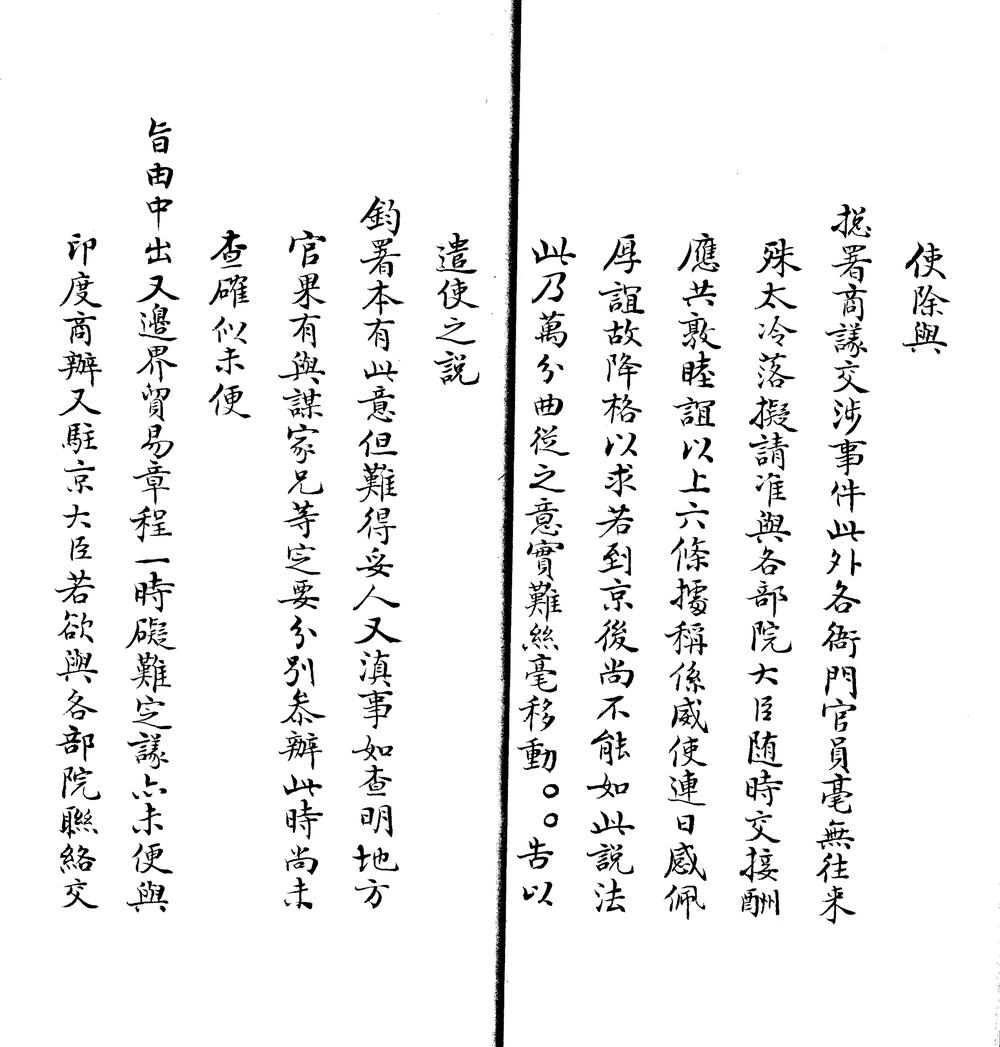 使除與
揔署商議交涉事件此外各衙門官員毫無往来
殊太冷落擬請准與各部院大臣随時交接酬
應共敦睦誼以上六條據稱係威使連日感佩
厚誼故降格以求若到京後尚不能如此説法
此乃萬分曲従之意實難絲毫移動。。告以
遣使之説
鈞署本有此意但難得妥人又滇事如查明地方
官果有與謀家兄等定要分别叅辦此時尚未
查確似未便
旨由中出又邊界貿易章程一時礙難定議亦未便與
印度商辦又駐京大臣若欲與各部院聯絡交